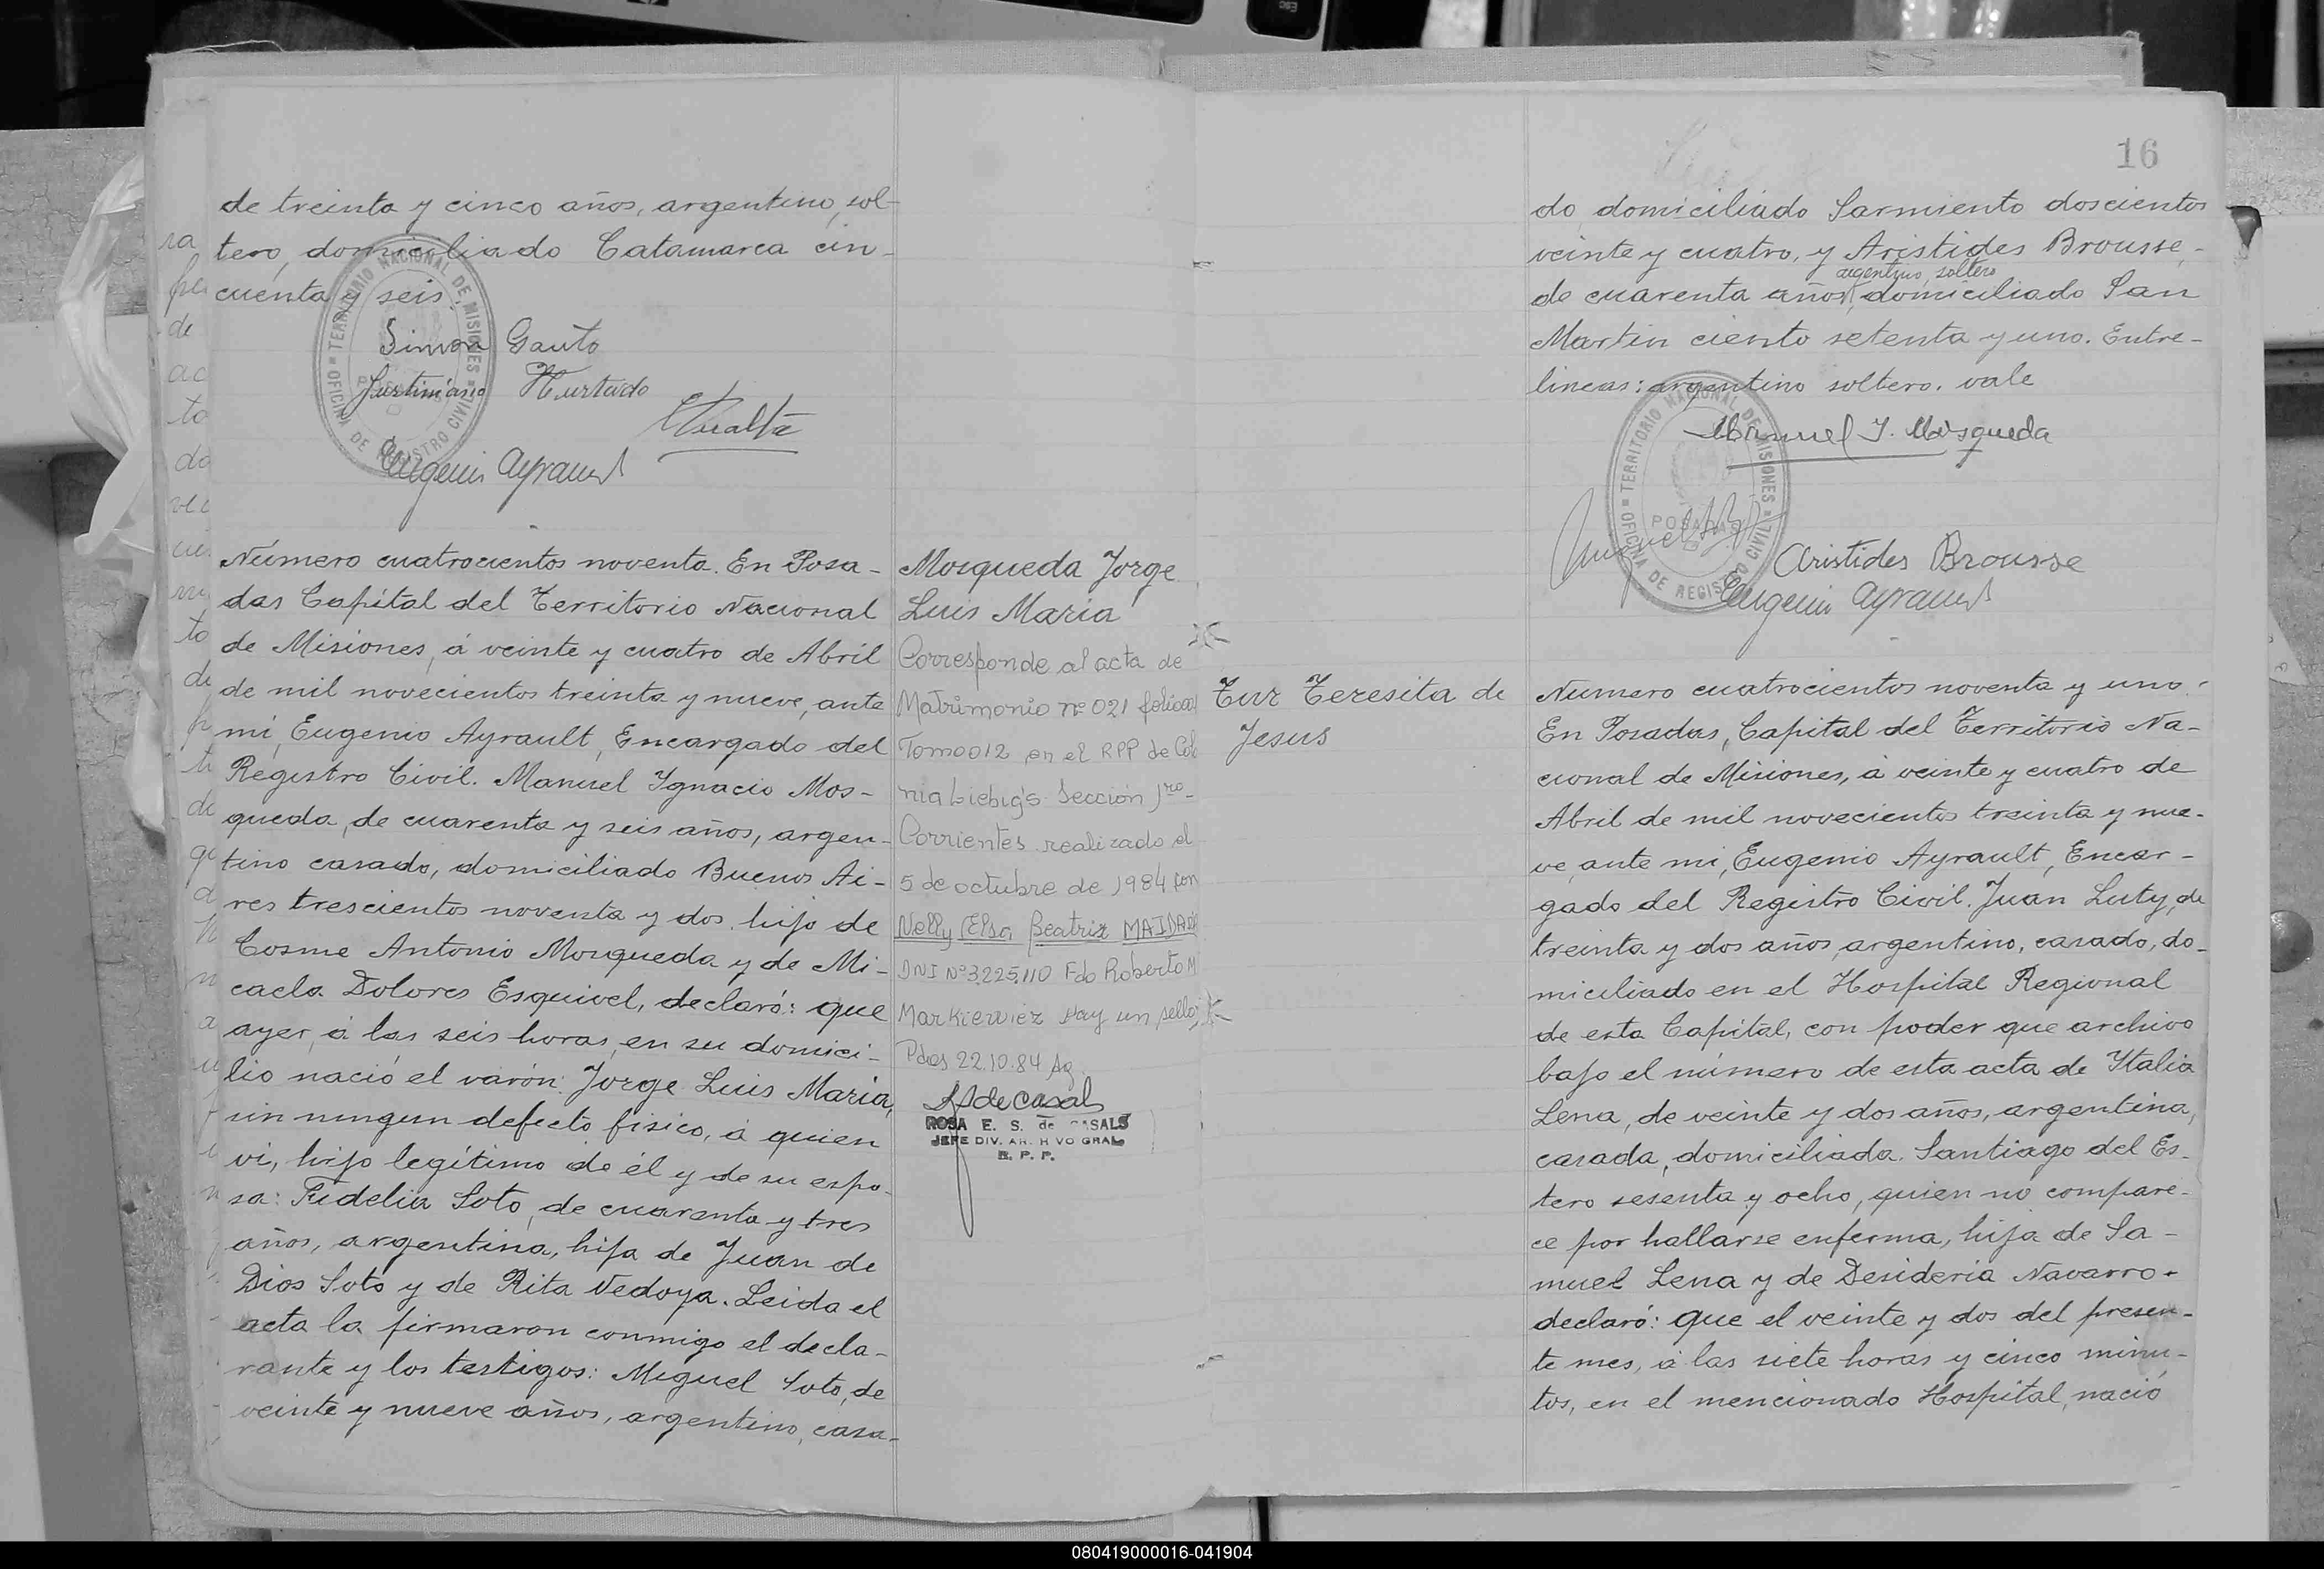 de treinta y cinco años, argentino, sol-
tero, domiciliado Catamarca cin-
cuenta y seis.
Simon Gauto
Justiniano Hurtado
Eugenio Ayrault
TERRITORIO NACIONAL DE MISIONES
OFICINA DE REGISTRO CIVIL
POSADAS
Número cuatrocientos noventa. En Posa-
das Capital del Territorio Nacional
de Misiones, á veinte y cuatro de Abril
de mil novecientos treinta y nueve, ante
mi, Eugenio Ayrault, Encargado del
Registro Civil. Manuel Ygnacio Mos-
queda, de cuarenta y seis años, argen-
tino casado, domiciliado Buenos Ai-
res trescientos noventa y dos, hijo de
Cosme Antonio Mosqueda y de Mi-
caela Dolores Esquivel, declaró: que
ayer, á las seis horas, en su domici-
lio nació el varón: Jorge Luis Maria,
sin ningun defecto fisico, á quien
vi, hijo legítimo de él y de su espo-
sa: Fidelia Soto, de cuarenta y tres
años, argentina, hija de Juan de
Dios Soto y de Rita Vedoya. Leida el
acta la firmaron conmigo el decla-
rante y los testigos: Miguel Soto, de
veinte y nueve años, argentino, casa-
Mosqueda Jorge
Luis Maria
Corresponde al acta de
Matrimonio nº 021 folio
Tomo 012 en el RPP de Colo
nia Liebig's Sección 1ro-
Corrientes realizado el
5 de octubre de 1984 con
Nelly Elsa Beatriz MAIDA
DNI Nº 3.225.110 Fdo Roberto M
Markiewiez Hay un sello
Pdas 22.10.84 Ag
ROSA E. S. de CASALS
JEFE DIV. ARCHIVO GRAL
R. P. P.
16
do, domiciliado Sarmiento doscientos
veinte y cuatro, y Aristides Brousse,-
argentino, soltero
de cuarenta años, domiciliado San
Martin ciento setenta y uno. Entre-
lineas: argentino soltero. vale
Manuel Y. Mosqueda
Aristides Brousse
Eugenio Ayrault
TERRITORIO NACIONAL DE MISIONES
OFICINA DE REGISTRO CIVIL
POSADAS
Tur Teresita de
Jesus
Numero cuatrocientos noventa y uno.
En Posadas, Capital del Territorio Na-
cional de Misiones, á veinte y cuatro de
Abril de mil novecientos treinta y nue-
ve, ante mi, Eugenio Ayrault, Encar-
gado del Registro Civil. Juan Luty, de
treinta y dos años, argentino, casado, do-
miciliado en el Hospital Regional
de esta Capital, con poder que archivo
bajo el número de esta acta de Ytalia
Lena, de veinte y dos años, argentina,
casada, domiciliada Santiago del Es-
tero sesenta y ocho, quien no compare-
ce por hallarse enferma, hija de Sa-
muel Lena y de Desideria Navarro-
declaró: que el veinte y dos del presen-
te mes, á las siete horas y cinco minu-
tos, en el mencionado Hospital, nació
080419000016-041904